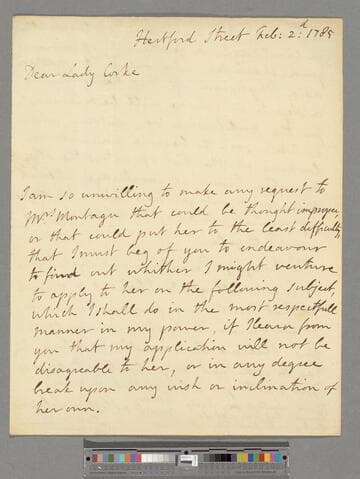 Hertford Street Feb: 2:d 1785
Dear Lady Corke
I am so unwilling to make any request to
Mrs. Montagu that could be thought improper
or that could put her to the least difficulty,
that I must beg of you to endeavour
to find out whither I might venture
to apply to her on the following subject,
which I shall do in the most respectfull
manner in my power, if I learn from
you that my application will not be
disagreable to her, or in any degree
break upon any wish or inclination of
her own.